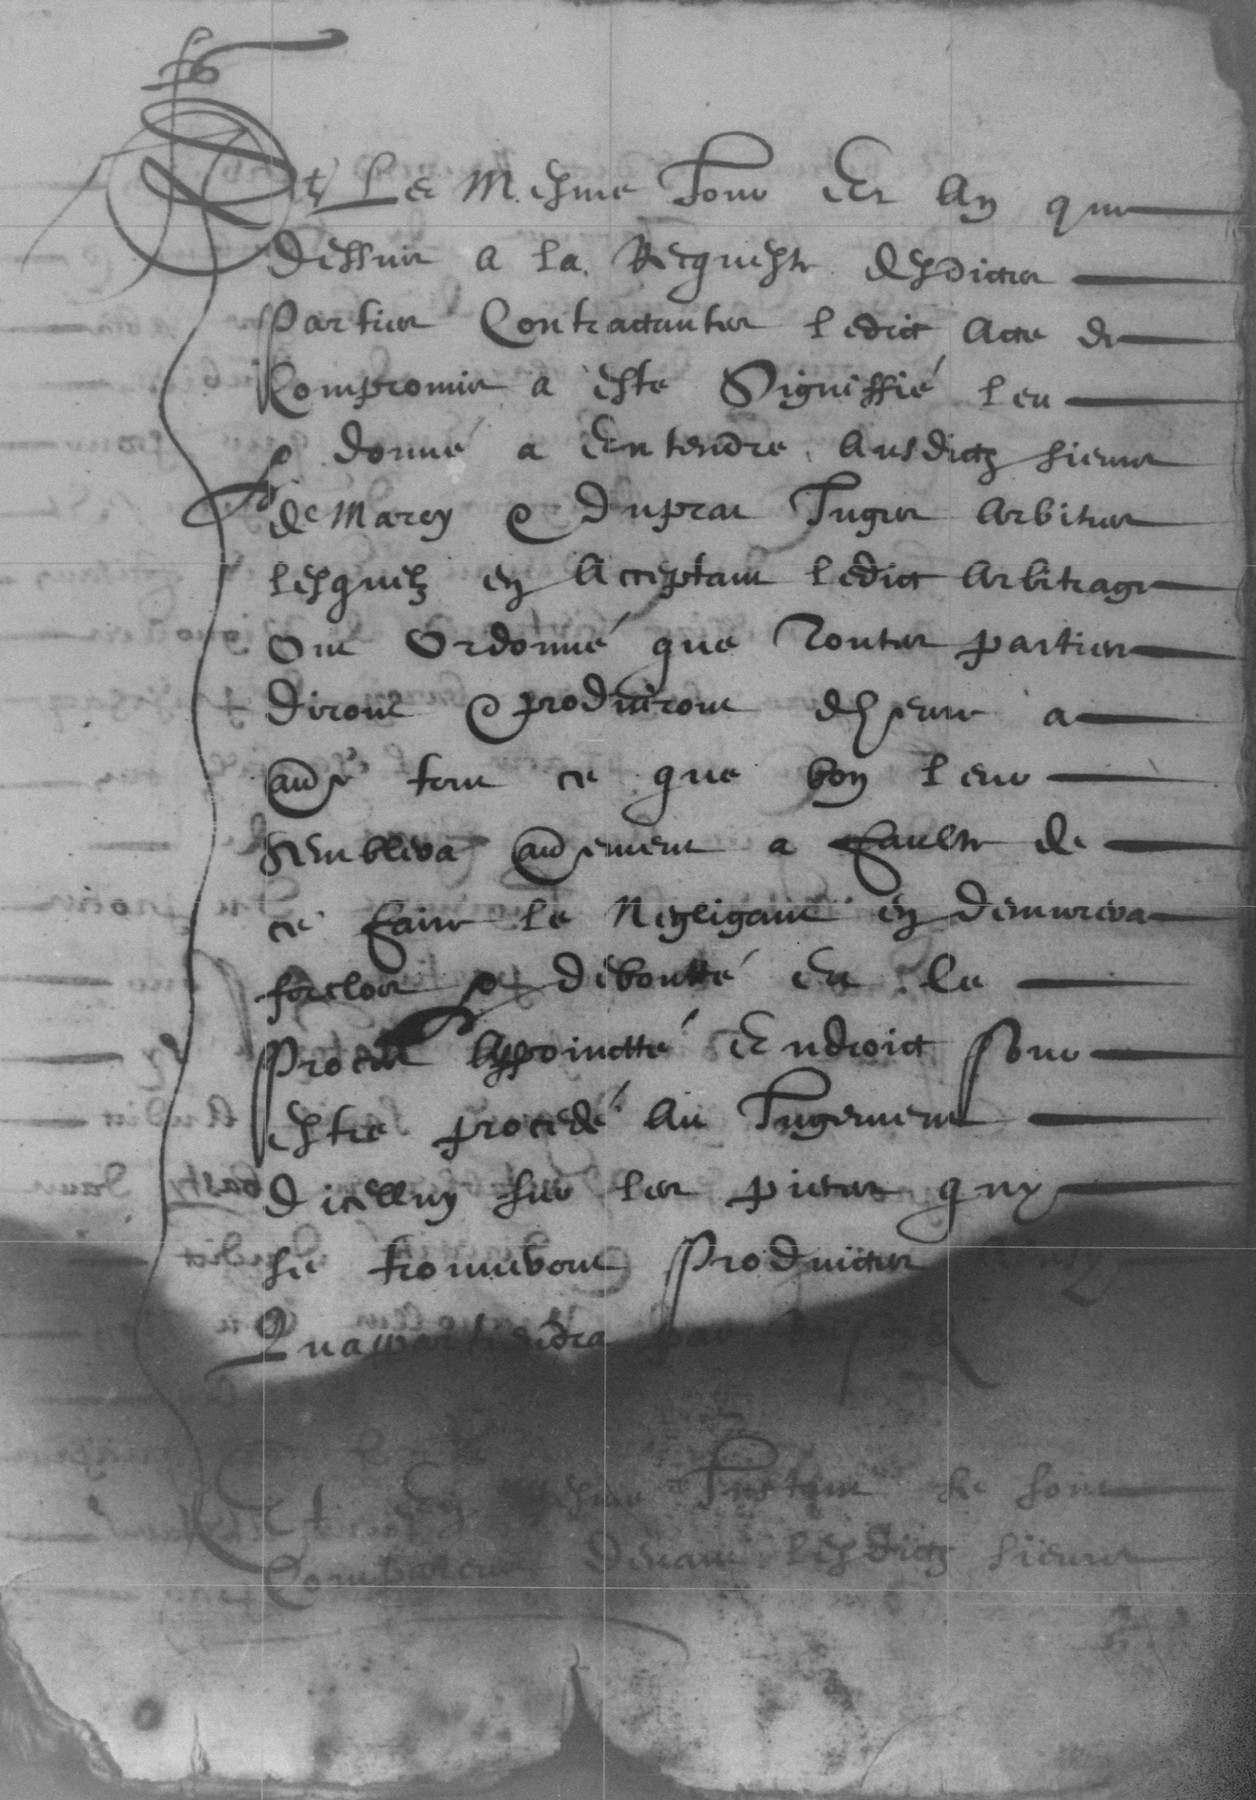 Et Le Mesme Jour Et An que
dessus a la Requeste desdictes
Parties Contractantes ledict Acte de
Compromis a este Signiffié leu
& donné a Entendre Ausdictz sieurs
de Marcy & Duprat Juges Arbitres
lesquelz en Acceptant ledict Arbitrage
Ont Ordonné que Toutes parties
diront & produiront a
tout ce que bon leur
semblera a faulte de
ce faire le Negligant en demurera
forclos & deboutté Et Le
Proces Appoinctté En droict Pour
estre procedé Au Jugement
dicelluy sur les pieces quy
se trouveront Produictes
Quapartiendra
Et En mesme Instant se sont
Compareus devant lesdictz sieurs